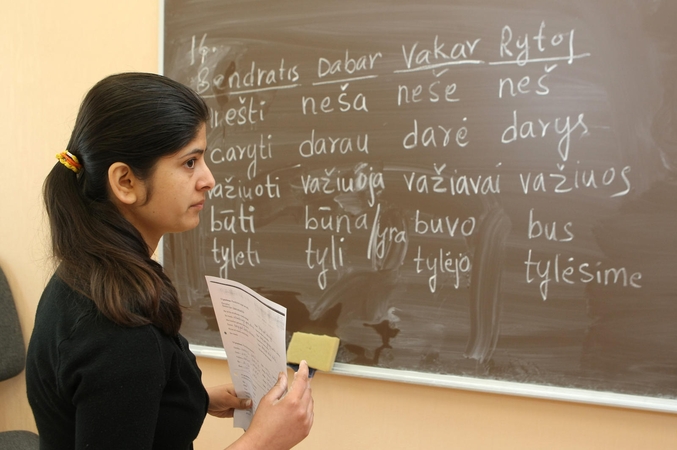 Bendratis Dabar Vakar Rytoj
nešti neša nešė neš
daryti darau darė darys
važiuoti važiuoja važiavai važiuos
būti būna/yra buvo bus
tylėti tyli tylėjo tylėsime